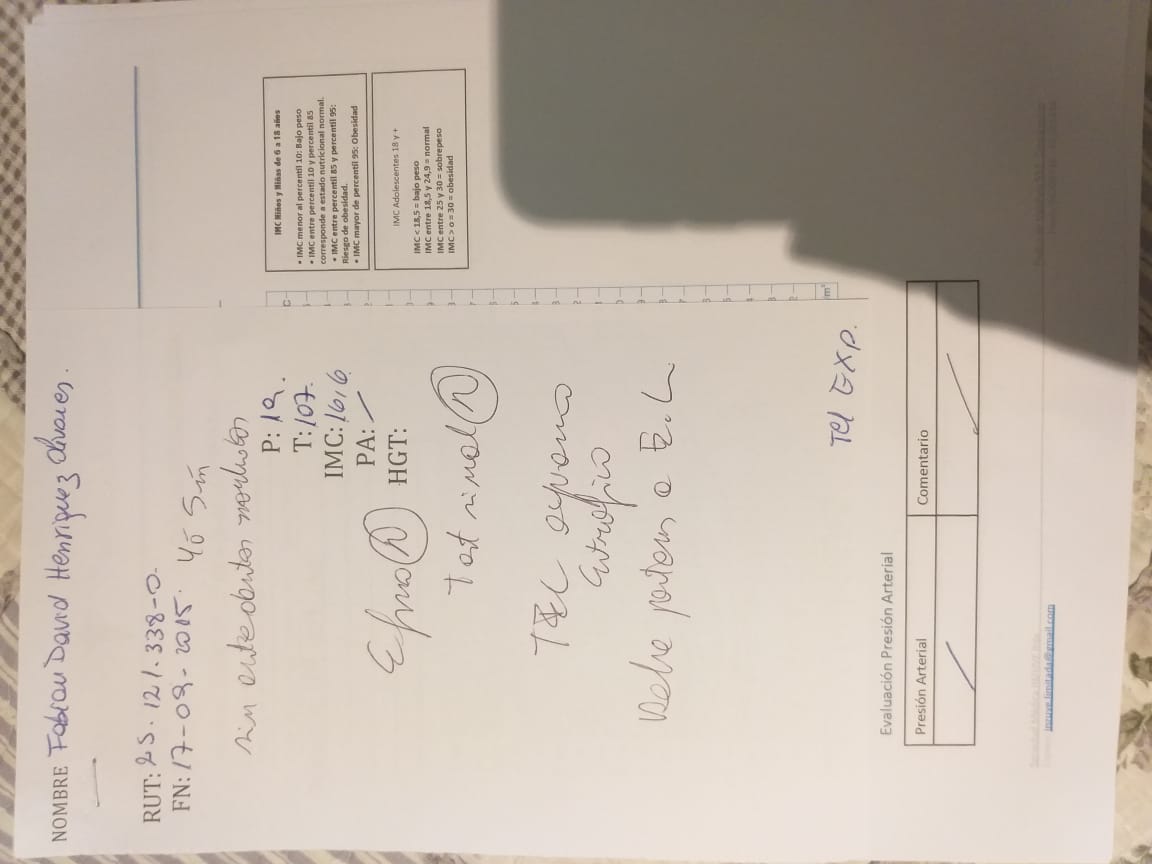 NOMBRE Fabian David Henriquez Olivares.
RUT: 25.121.338-0-
FN: 17-09-2015. 4ó 5m
sin antecedentes morbidos
P: 19.
T: 107.
IMC: 16,6
PA: /
HGT:
Efisico N
Test visual N
TEL expreso
Eutrofico
Debe E.L
Tel EXP.
IMC Niños y Niñas de 6 a 18 años
• IMC menor al percentil 10: Bajo peso
• IMC entre percentil 10 y percentil 85
corresponde a estado nutricional normal.
• IMC entre percentil 85 y percentil 95:
Riesgo de obesidad.
• IMC mayor de percentil 95: Obesidad
IMC Adolescentes 18 y +
IMC < 18,5 = bajo peso
IMC entre 18,5 y 24,9 = normal
IMC entre 25 y 30 = sobrepeso
IMC > o = 30 = obesidad
m²
Evaluación Presión Arterial
Presión Arterial
Comentario
inzuve.limitada@gmail.com